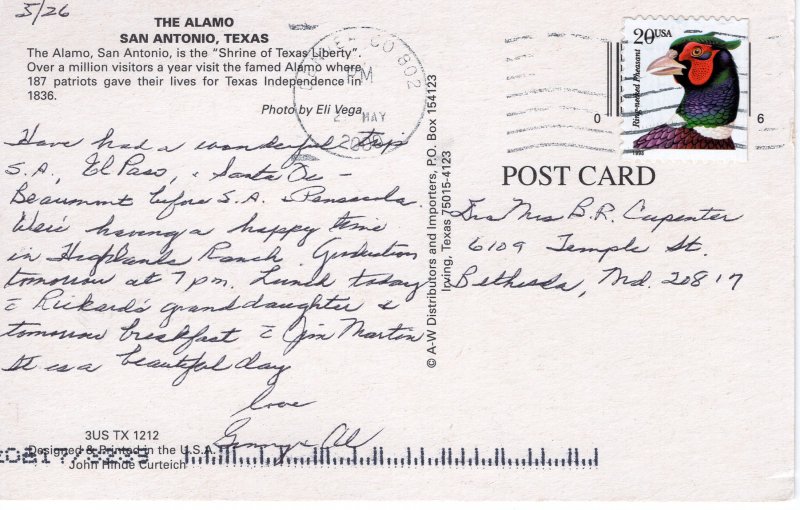 5/26
THE ALAMO
SAN ANTONIO, TEXAS
The Alamo, San Antonio, is the "Shrine of Texas Liberty".
Over a million visitors a year visit the famed Alamo where
187 patriots gave their lives for Texas Independence in
1836.
Photo by Eli Vega
Have had a wonderful trip
S.A., El Paso, & Santa Fe -
Beaumont before S.A. Pensacola.
We're having a happy time
in Highlands Ranch. Graduation
tomorrow at 7 pm. Lunch today
c̄ Rickard's granddaughter &
tomorrow breakfast c̄ Jim Martin
It is a beautiful day
love
Ginny & Al
3US TX 1212
Designed & Printed in the U.S.A.
John Hinde Curteich
© A-W Distributors and Importers, P.O. Box 154123
Irving, Texas 75015-4123
CO 802
PM
MAY
20USA
Ring-necked Pheasant
1998
0 6
POST CARD
Dr & Mrs B.R. Carpenter
6109 Temple St.
Bethesda, Md. 20817